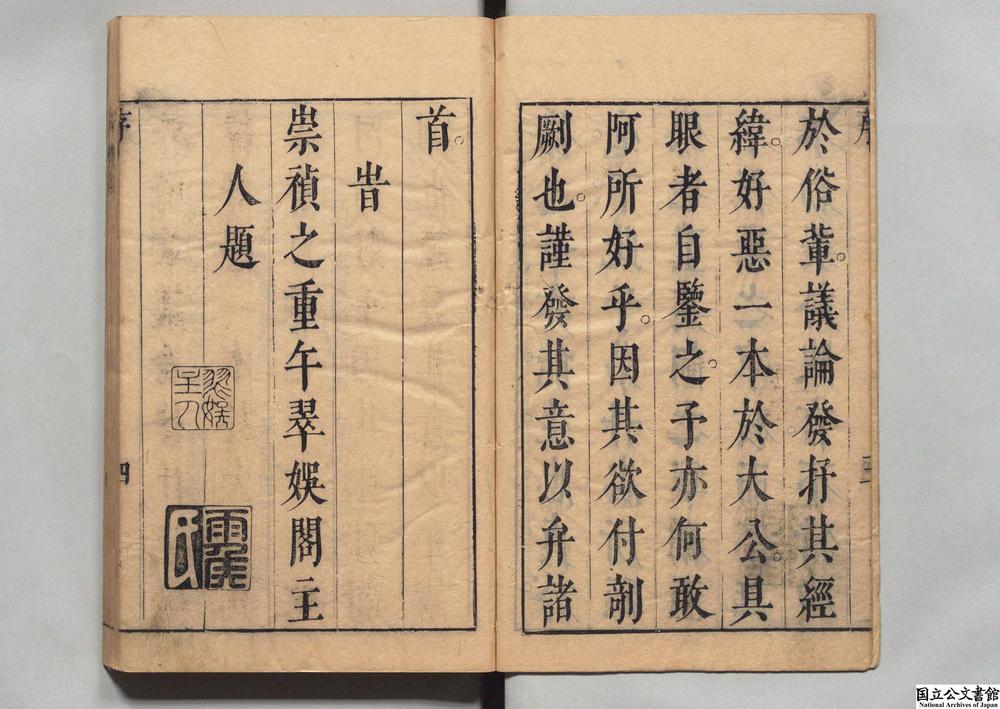 於俗輩。議論發抒其經
緯。好惡一本於大公。具
眼者自鑒之。予亦何敢
阿所好乎。因其欲付剞
劂也。謹發其意以弁諸
首。
旹
崇禎之重午翠娛閣主
人題
序
四
国立公文書館
National Archives of Japan